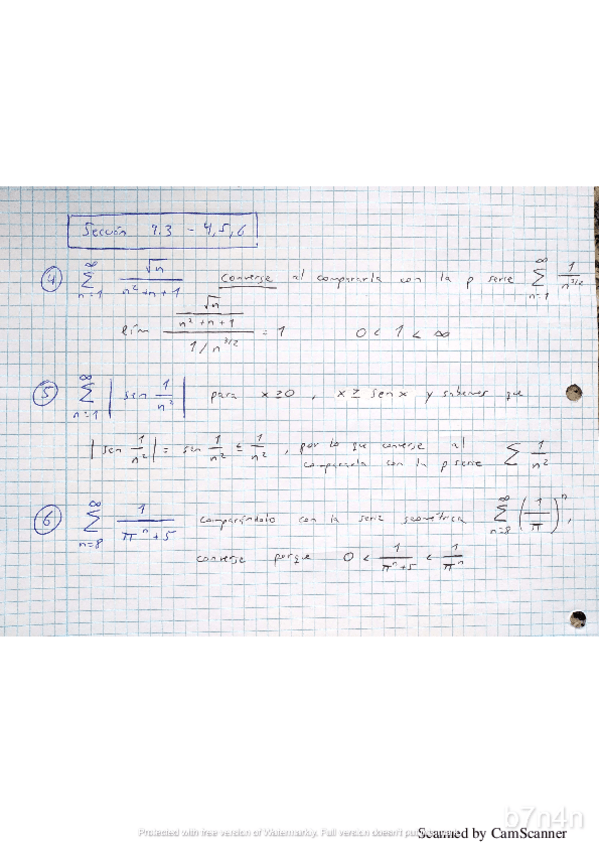 Sección 7.3 - 4,5,6
④ ∑_{n=1}^{∞} √n / (n² + n + 1) converge al compararla con la p serie ∑_{n=1}^{∞} 1/n^{3/2}
lím (√n / (n² + n + 1)) / (1/n^{3/2}) = 1 0 < 1 < ∞
⑤ ∑_{n=1}^{∞} | sen 1/n² | para x ≥ 0 , x ≥ sen x y sabemos que
| sen 1/n² | = sen 1/n² ≤ 1/n² , por lo que converge al
compararla con la p serie ∑ 1/n²
⑥ ∑_{n=8}^{∞} 1 / (πⁿ + 5) comparándolo con la serie geométrica ∑_{n=8}^{∞} (1/π)ⁿ ,
converge porque 0 < 1/(πⁿ+5) < 1/πⁿ
b7n4n
Protected with free version of Watermarkly. Full version doesn't put
Scanned by CamScanner